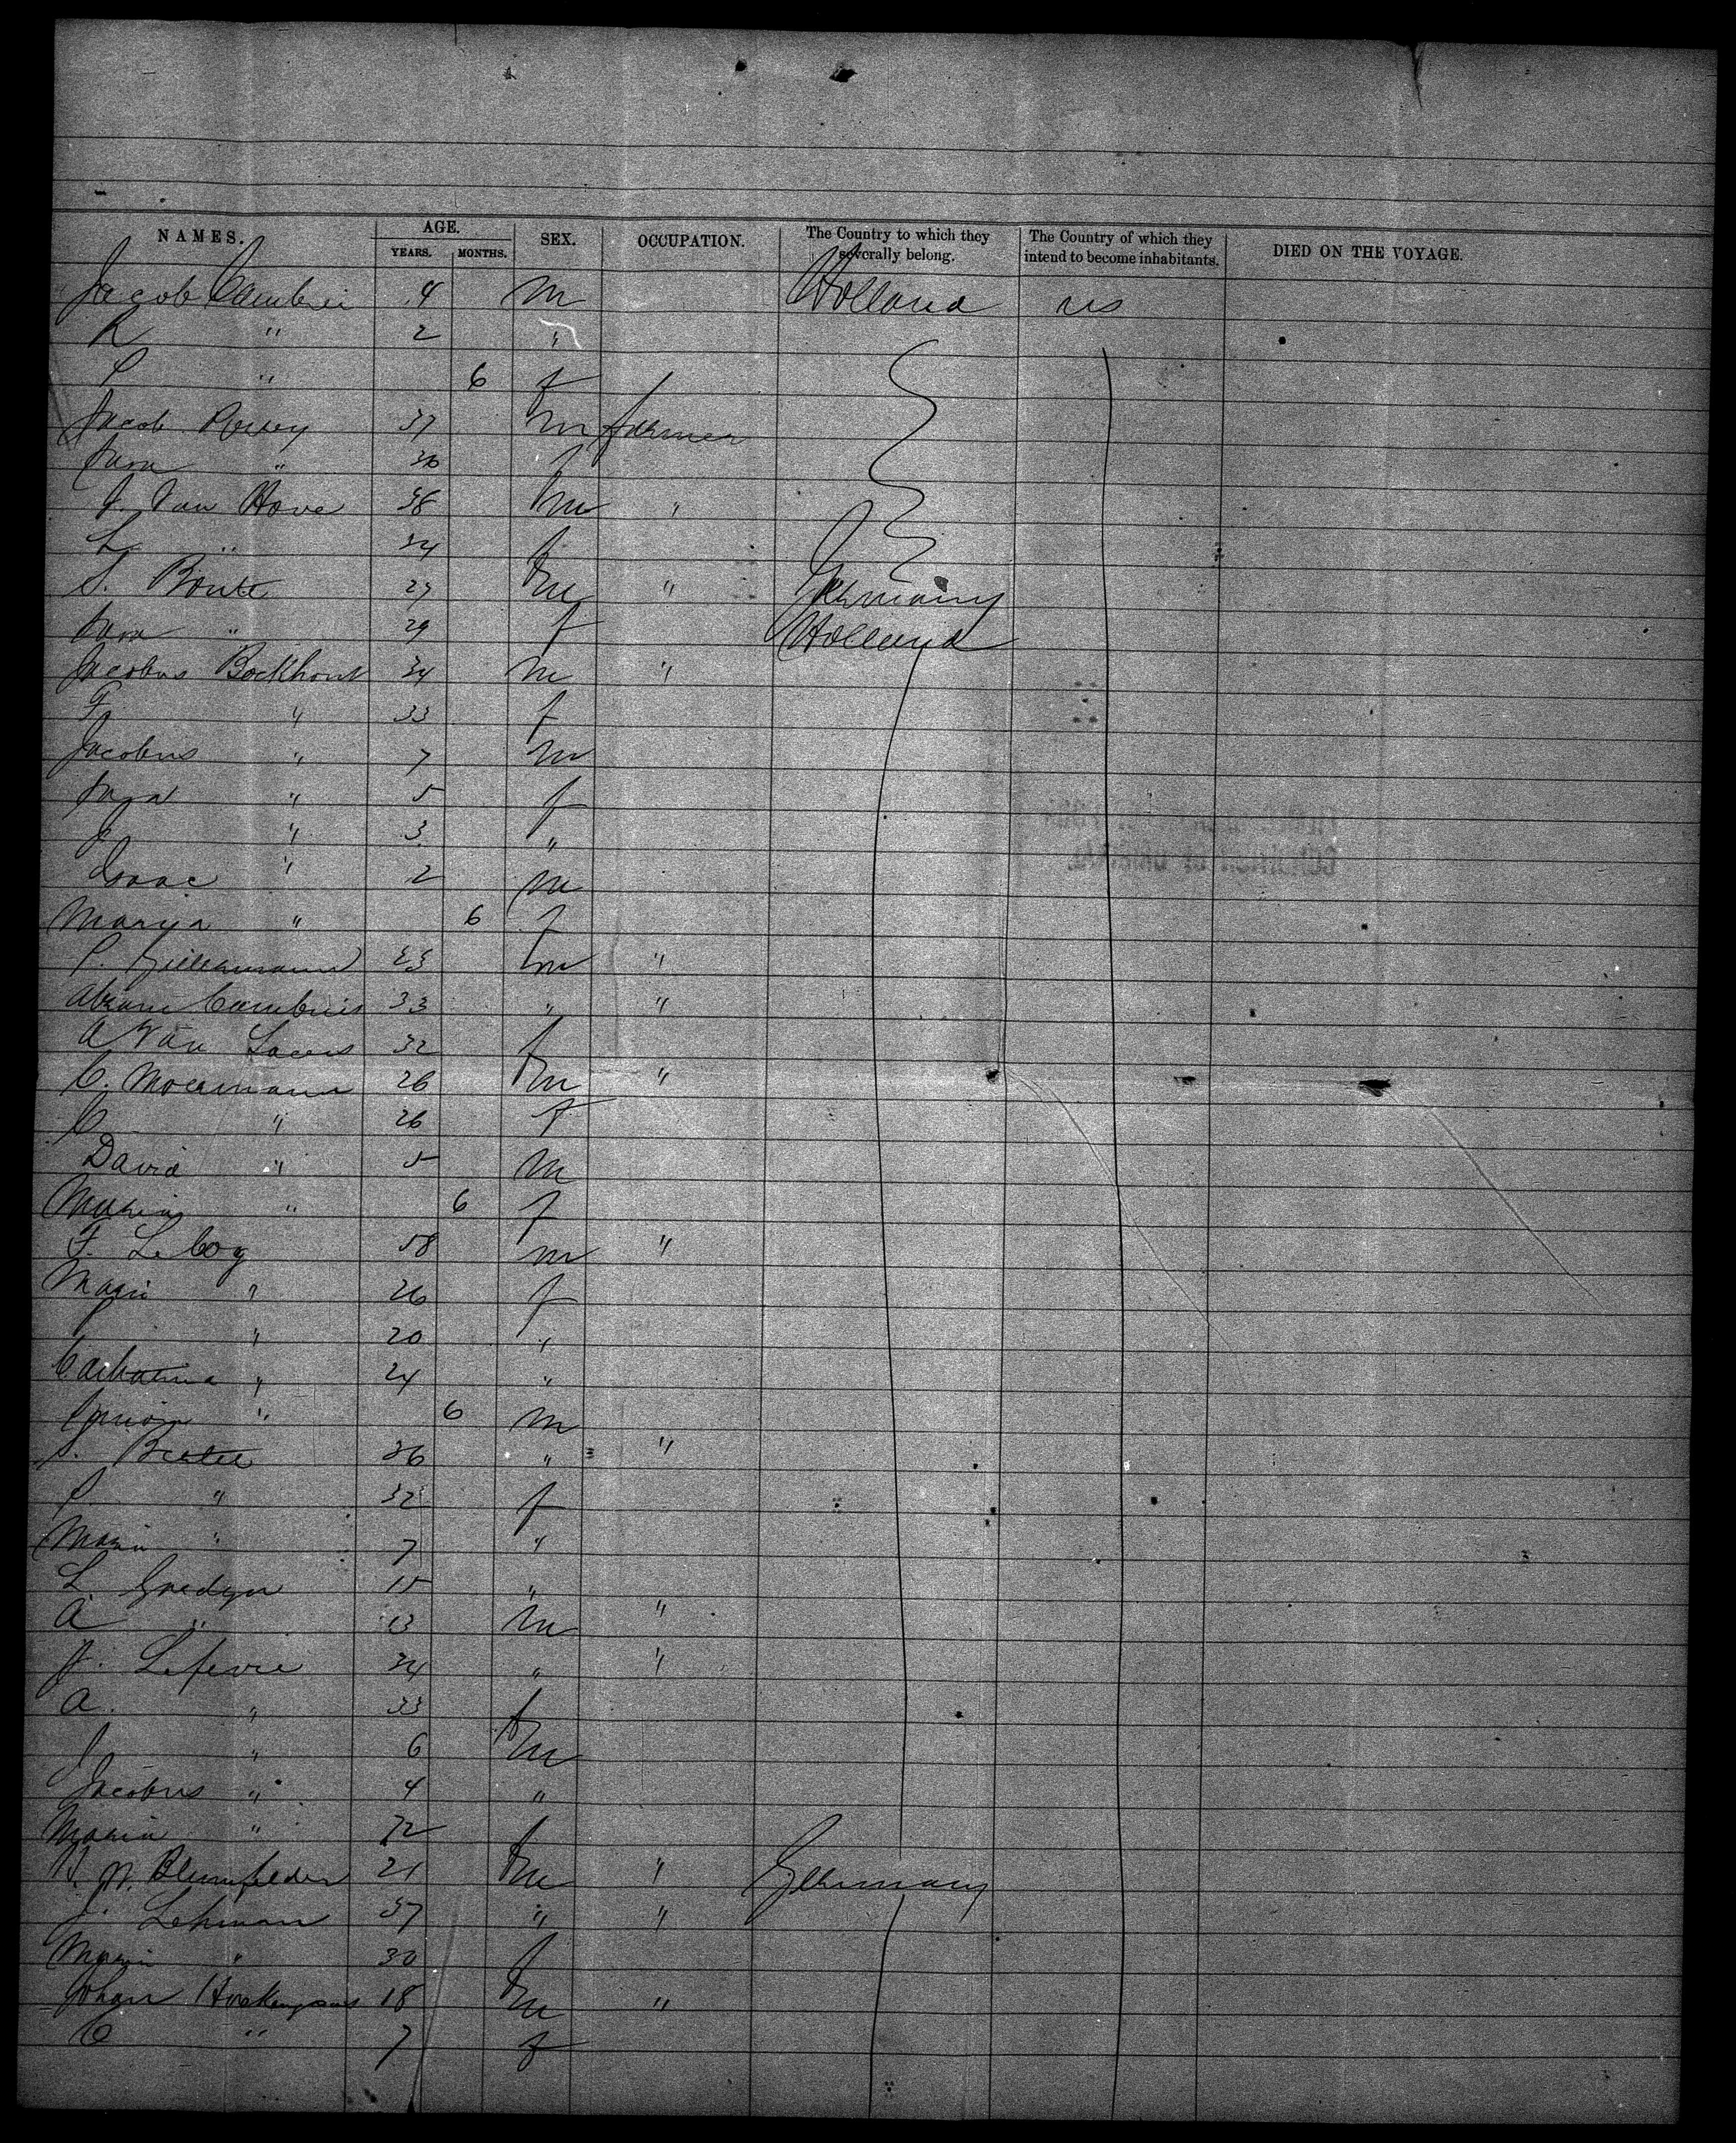 NAMES. AGE. SEX. OCCUPATION. The Country to which they severally belong. The Country of which they intend to become inhabitants. DIED ON THE VOYAGE.
YEARS. MONTHS.
Jacob Cambrie 4 m Holland us
R " 2 "
P " 6 f
Jacob 37 m farmer
Sara " 36 f
J. Van Hove 38 m "
L " 34 f
S. Bonte 27 m " Germany
Sara " 29 f Holland
Jacobus Bockhout 34 m "
F " 33 f
Jacobus " 7 m
Sara " 5 f
J " 3 "
Isaac " 2 m
Marya " 6 f
P. 23 m "
Abram Cambrie 33 " "
A Van 32 f
C. Moermann 26 m "
C " 26 f
David " 5 m
Maria " 6 f
F. Le Coq 58 m "
Marie " 26 f
P " 20 "
Catharina " 24 "
" 6 m
S. 36 " "
P. " 32 f
Maria " 7 "
L. 15 "
A " 13 m "
J. Lefevre 34 " "
A. " 33 f
J " 6 m
Jacobus " 4 "
Maria " 72 f
Blumfelder 21 m " Germany
J. Lehman 37 " "
Maria " 30 f
Johan 18 m "
C " 7 f